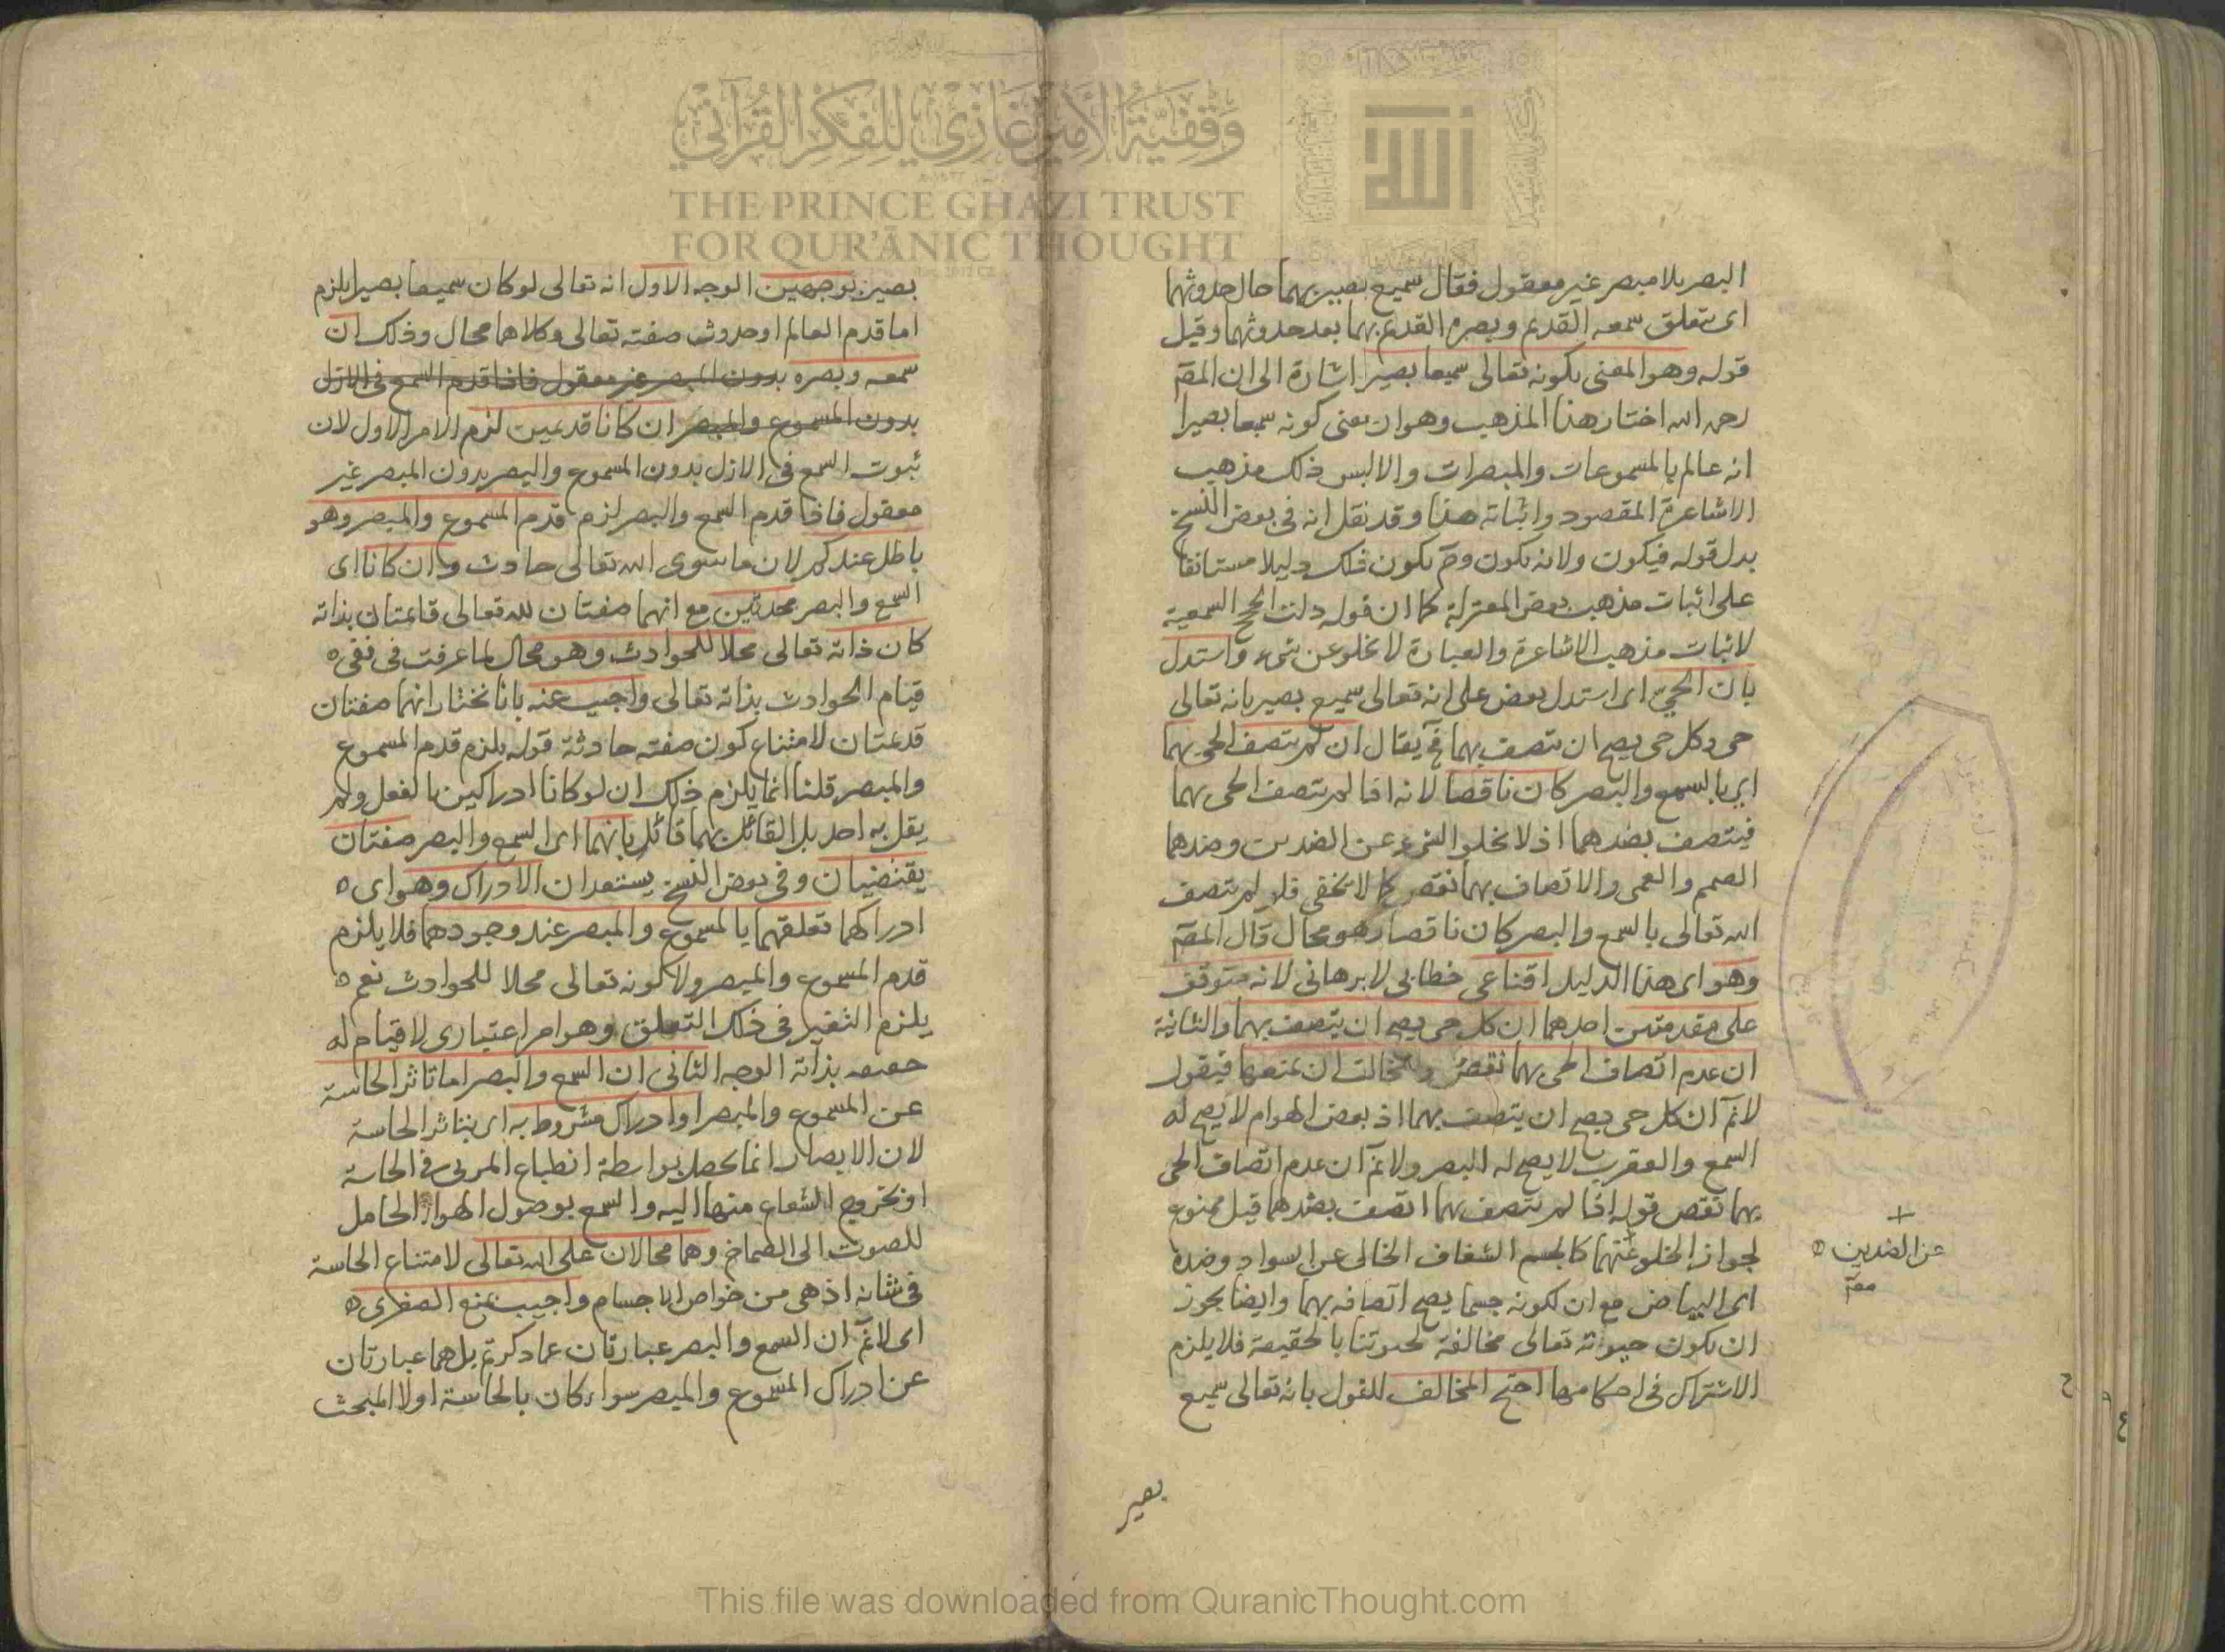 البصر بلا مبصر غير معقول فقال سميع بصير بهما حال حدوثهما
اى يتعلق سمعه القديم وبصره القديم بهما بعد حدوثهما وقيل
قوله وهو المعنى بكونه تعالى سميعا بصيرا اشارة الى ان المصّ
رحمه الله اختار هذا المذهب وهو ان معنى كونه سميعا بصيرا
انه عالم بالمسموعات والمبصرات والا ليس ذلك مذهب
الاشاعرة المقصود واثباته هذا وقد نقل انه فى بعض النسخ
بدل قوله فيكون ولانه يكون وح يكون ذلك دليلا مستانفا
على اثبات مذهب بعض المعتزلة كما ان قوله دلت الحجج السمعية
لاثبات مذهب الاشاعرة والعبارة لا تخلو عن شىء واستدل
بان الحى اى استدل بعض على انه تعالى سميع بصير بانه تعالى
حى وكل حى يصح ان يتصف بهما فح يقال ان لم يتصف الحى بهما
اى بالسمع والبصر كان ناقصا لانه اذا لم يتصف الحى بهما
فيتصف بضدهما اذ لا يخلو الشىء عن الضدين وضدهما
الصمم والعمى والاتصاف بهما نقص كما لا يخفى فلو لم يتصف
الله تعالى بالسمع والبصر كان ناقصا وهو محال قال المصّ
وهو اى هذا الدليل اقناعى خطابى لا برهانى لانه متوقف
على مقدمتين احدهما ان كل حى يصح ان يتصف بهما والثانية
ان عدم اتصاف الحى بهما نقص ان يمنعهما فيقول
لانم ان كل حى يصح ان يتصف بهما اذ بعض الهوام لا يصح له
السمع والعقرب لا يصح له البصر ولانم ان عدم اتصاف الحى
بهما نقص قوله اذا لم يتصف بهما اتصف بضدهما قيل ممنوع
لجواز الخلو عنهما كالجسم الشفاف الخالى عن السواد وضده
اى البياض مع ان لكونه جسما يصح اتصافه بهما وايضا يجوز
ان يكون حيوته تعالى مخالفة لحيوتنا بالحقيقة فلا يلزم
الاشتراك فى احكامها احتج المخالف للقول بانه تعالى سميع
عن الضدين
بصير
بصير بوجهين الوجه الاول انه تعالى لو كان سميعا بصيرا يلزم
اما قدم العالم او حدوث صفته تعالى وكلاهما محال وذلك ان
سمعه وبصره بدون المبصر غير معقول فاذا قدم السمع فى الازل
بدون المسموع والمبصر ان كانا قديمين لزم الامر الاول لان
ثبوت السمع فى الازل بدون المسموع والبصر بدون المبصر غير
معقول فاذا قدم السمع والبصر لزم قدم المسموع والمبصر وهو
باطل عندكم لان ما سوى الله تعالى حادث وان كانا اى
السمع والبصر محدثين مع انهما صفتان لله تعالى قائمتان بذاته
كان ذاته تعالى محلا للحوادث وهو محال لما عرفت فى نفى
قيام الحوادث بذاته تعالى واجيب عنه بانا نختار انهما صفتان
قديمتان لامتناع كون صفته حادثة قوله يلزم قدم المسموع
والمبصر قلنا انما يلزم ذلك ان لو كانا ادراكين بالفعل ولم
يقل به احد بل القائل بهما قائل بانهما اى السمع والبصر صفتان
يقتضيان وفى بعض النسخ يستعدان الادراك وهو اى
ادراكهما تعلقهما بالمسموع والمبصر عند وجودهما فلا يلزم
قدم المسموع والمبصر ولا كونه تعالى محلا للحوادث نعم
يلزم التغير فى ذلك التعلق وهو امر اعتبارى لا قيام له
حقيقة بذاته الوجه الثانى ان السمع والبصر اما تاثر الحاسة
عن المسموع والمبصر او ادراك مشروط به اى بتاثر الحاسة
لان الابصار انما يحصل بواسطة انطباع المرئى فى الحاسة
او بخروج الشعاع منها اليه والسمع بوصول الهواء الحامل
للصوت الى الصماخ وهما محالان على الله تعالى لامتناع الحاسة
فى شانه اذ هى من خواص الاجسام واجيب بمنع الصغرى
اى لانم ان السمع والبصر عبارتان عما ذكرتم بل هما عبارتان
عن ادراك المسموع والمبصر سواء كان بالحاسة او لا المبحث
وقفية الأمير غازي للفكر القرآني
THE PRINCE GHAZI TRUST
FOR QUR'ĀNIC THOUGHT
الله
This file was downloaded from QuranicThought.com